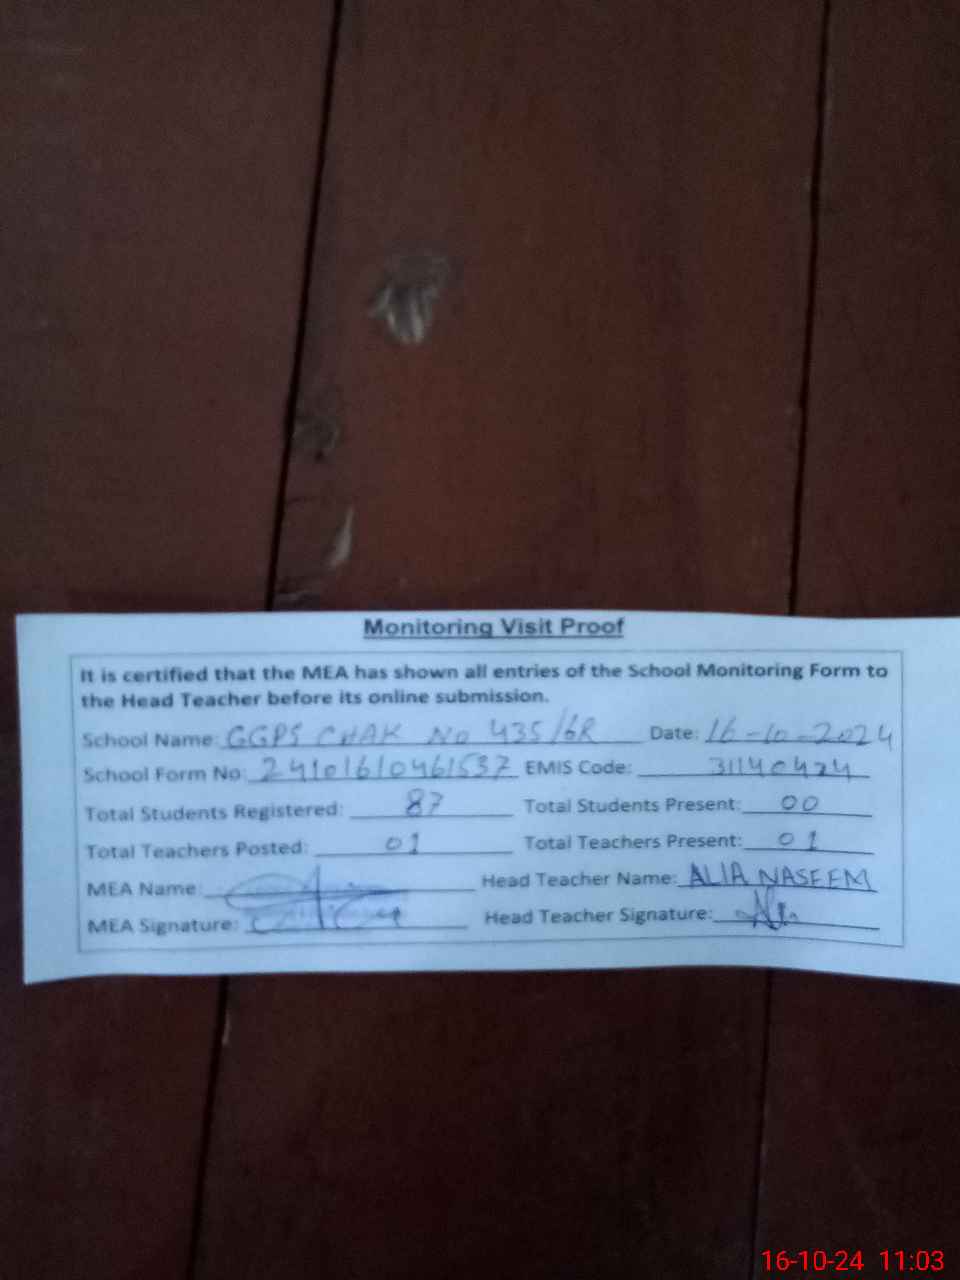 Monitoring Visit Proof
It is certified that the MEA has shown all entries of the School Monitoring Form to
the Head Teacher before its online submission.
School Name: GGPS CHAK No 435/6R Date: 16-10-2024
School Form No: 24101610461537 EMIS Code: 31140424
Total Students Registered: 87 Total Students Present: 00
Total Teachers Posted: 01 Total Teachers Present: 01
MEA Name: Head Teacher Name: ALIA NASEEM
MEA Signature: Head Teacher Signature:
16-10-24 11:03